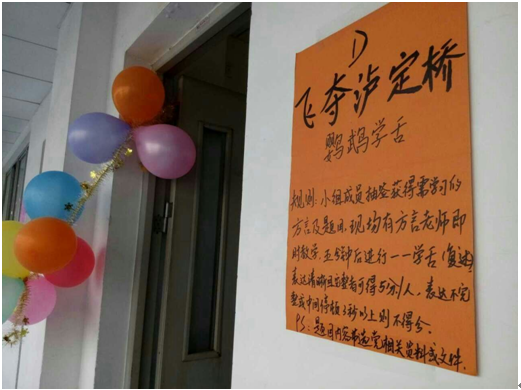 1)
飞夺泸定桥
鹦鹉学舌
规则:小组成员抽签获得需学习的
方言及题目,现场有方言老师即
时教学,五分钟后进行一一学舌(复述)
表达清晰且完整者可得5分/人,表达不完
整或中间停顿3秒以上则不得分。
PS:题目内容都选党相关资料或文件.